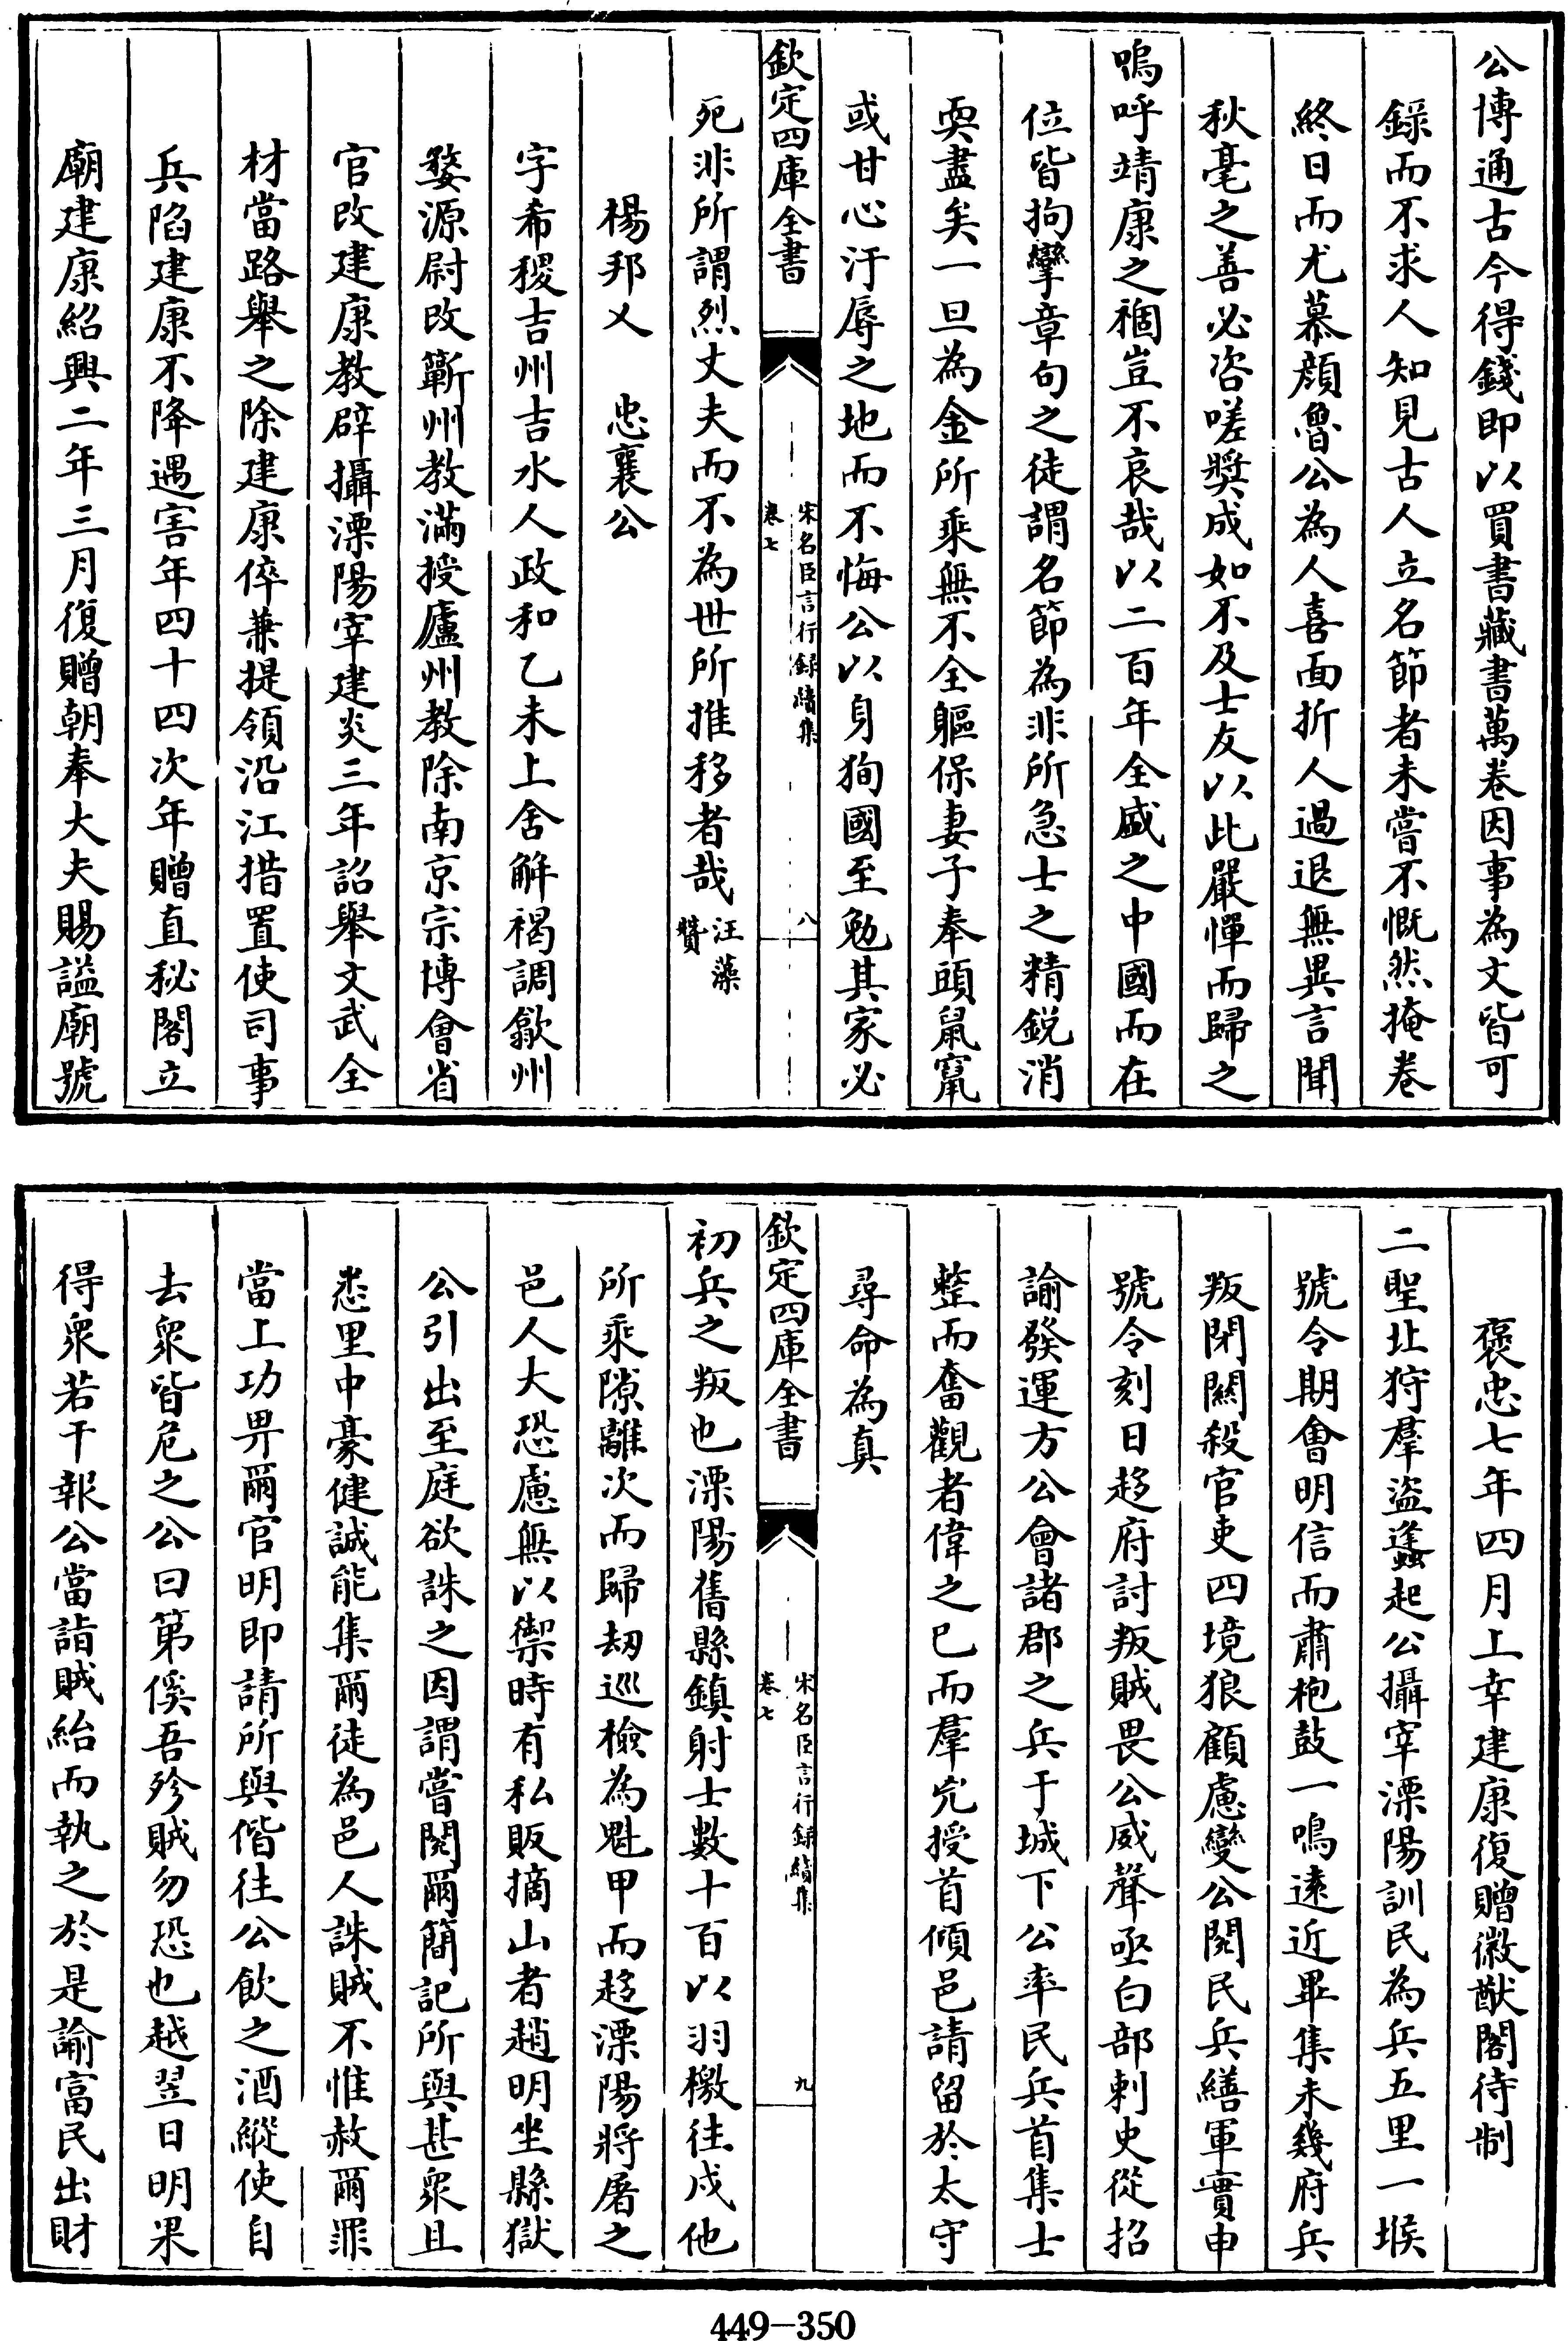 公博通古今得錢即以買書藏書萬卷因事為文皆可
錄而不求人知見古人立名節者未嘗不慨然掩卷
終日而尤慕顔魯公為人喜面折人過退無異言聞
秋毫之善必咨嗟奬成如不及士友以此嚴憚而歸之
嗚呼靖康之禍豈不哀哉以二百年全盛之中國而在
位皆拘攣章句之徒謂名節為非所急士之精鋭消
耎盡矣一旦為金所乘無不全軀保妻子奉頭鼠竄
或甘心汙辱之地而不悔公以身狥國至勉其家必
欽定四庫全書
宋名臣言行録續集
卷七
八
死非所謂烈丈夫而不為世所推移者哉汪藻贊
楊邦乂 忠襄公
字希稷吉州吉水人政和乙未上舍解褐調歙州
婺源尉改蘄州教滿授廬州教除南京宗博會省
官改建康教辟攝溧陽宰建炎三年詔舉文武全
材當路舉之除建康倅兼提領沿江措置使司事
兵陷建康不降遇害年四十四次年贈直秘閣立
廟建康紹興二年三月復贈朝奉大夫賜謚廟號
褒忠七年四月上幸建康復贈徽猷閣待制
二聖北狩羣盜蠭起公攝宰溧陽訓民為兵五里一堠
號令期會明信而肅枹鼓一鳴逺近畢集未幾府兵
叛閉闗殺官吏四境狼顧慮變公閱民兵繕軍實申
號令刻日趍府討叛賊畏公威聲亟白部刺史從招
諭發運方公會諸郡之兵于城下公率民兵首集士
整而奮觀者偉之已而羣兇授首傾邑請留於太守
尋命為真
欽定四庫全書
宋名臣言行録續集
卷七
九
初兵之叛也溧陽舊縣鎮射士數十百以羽檄往戍他
所乘隙離次而歸刼巡檢為魁甲而趍溧陽將屠之
邑人大恐慮無以禦時有私販摘山者趙明坐縣獄
公引出至庭欲誅之因謂嘗閱爾簡記所與甚衆且
悉里中豪健誠能集爾徒為邑人誅賊不惟赦爾罪
當上功畀爾官明即請所與偕往公飲之酒縱使自
去衆皆危之公曰第徯吾殄賊勿恐也越翌日明果
得衆若干報公當詣賊紿而執之於是諭富民出財
449-350